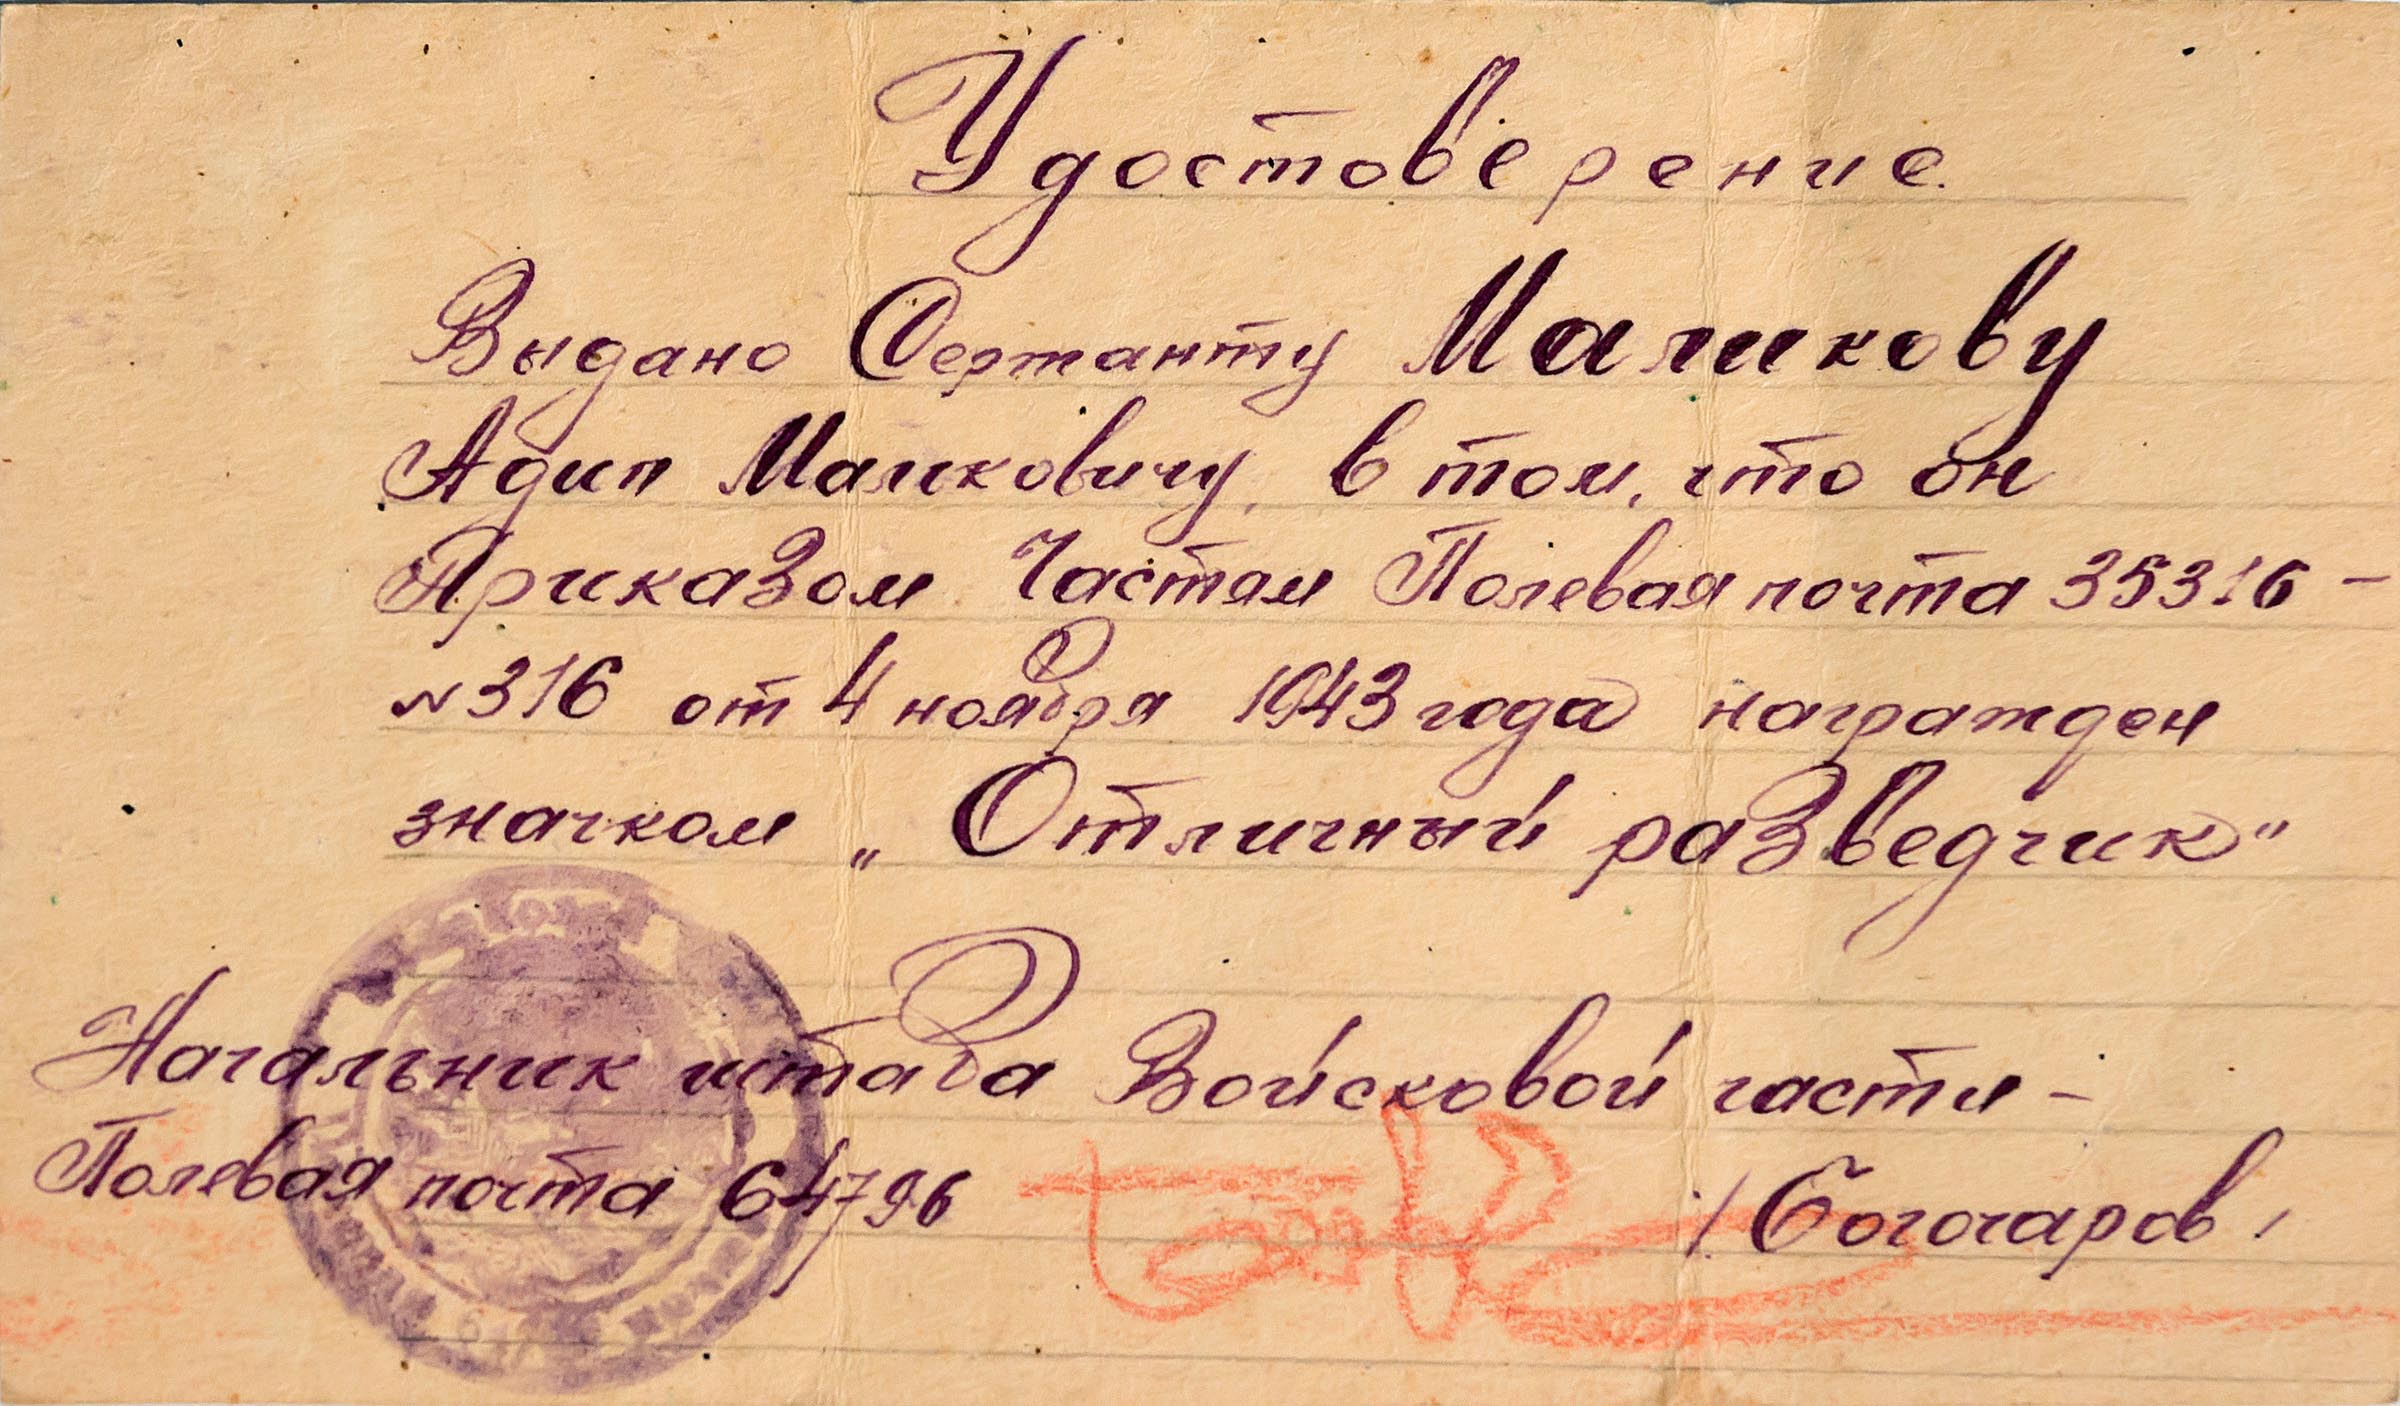 Удостоверение
Выдано Сержанту Маликову
Адип Маликовичу, в том, что он
Приказом Частям Полевая почта 35316 -
№316 от 4 ноября 1943 года награжден
значком „Отличный разведчик“
Начальник штаба Войсковой части -
Полевая почта 64796
/Богочаров/